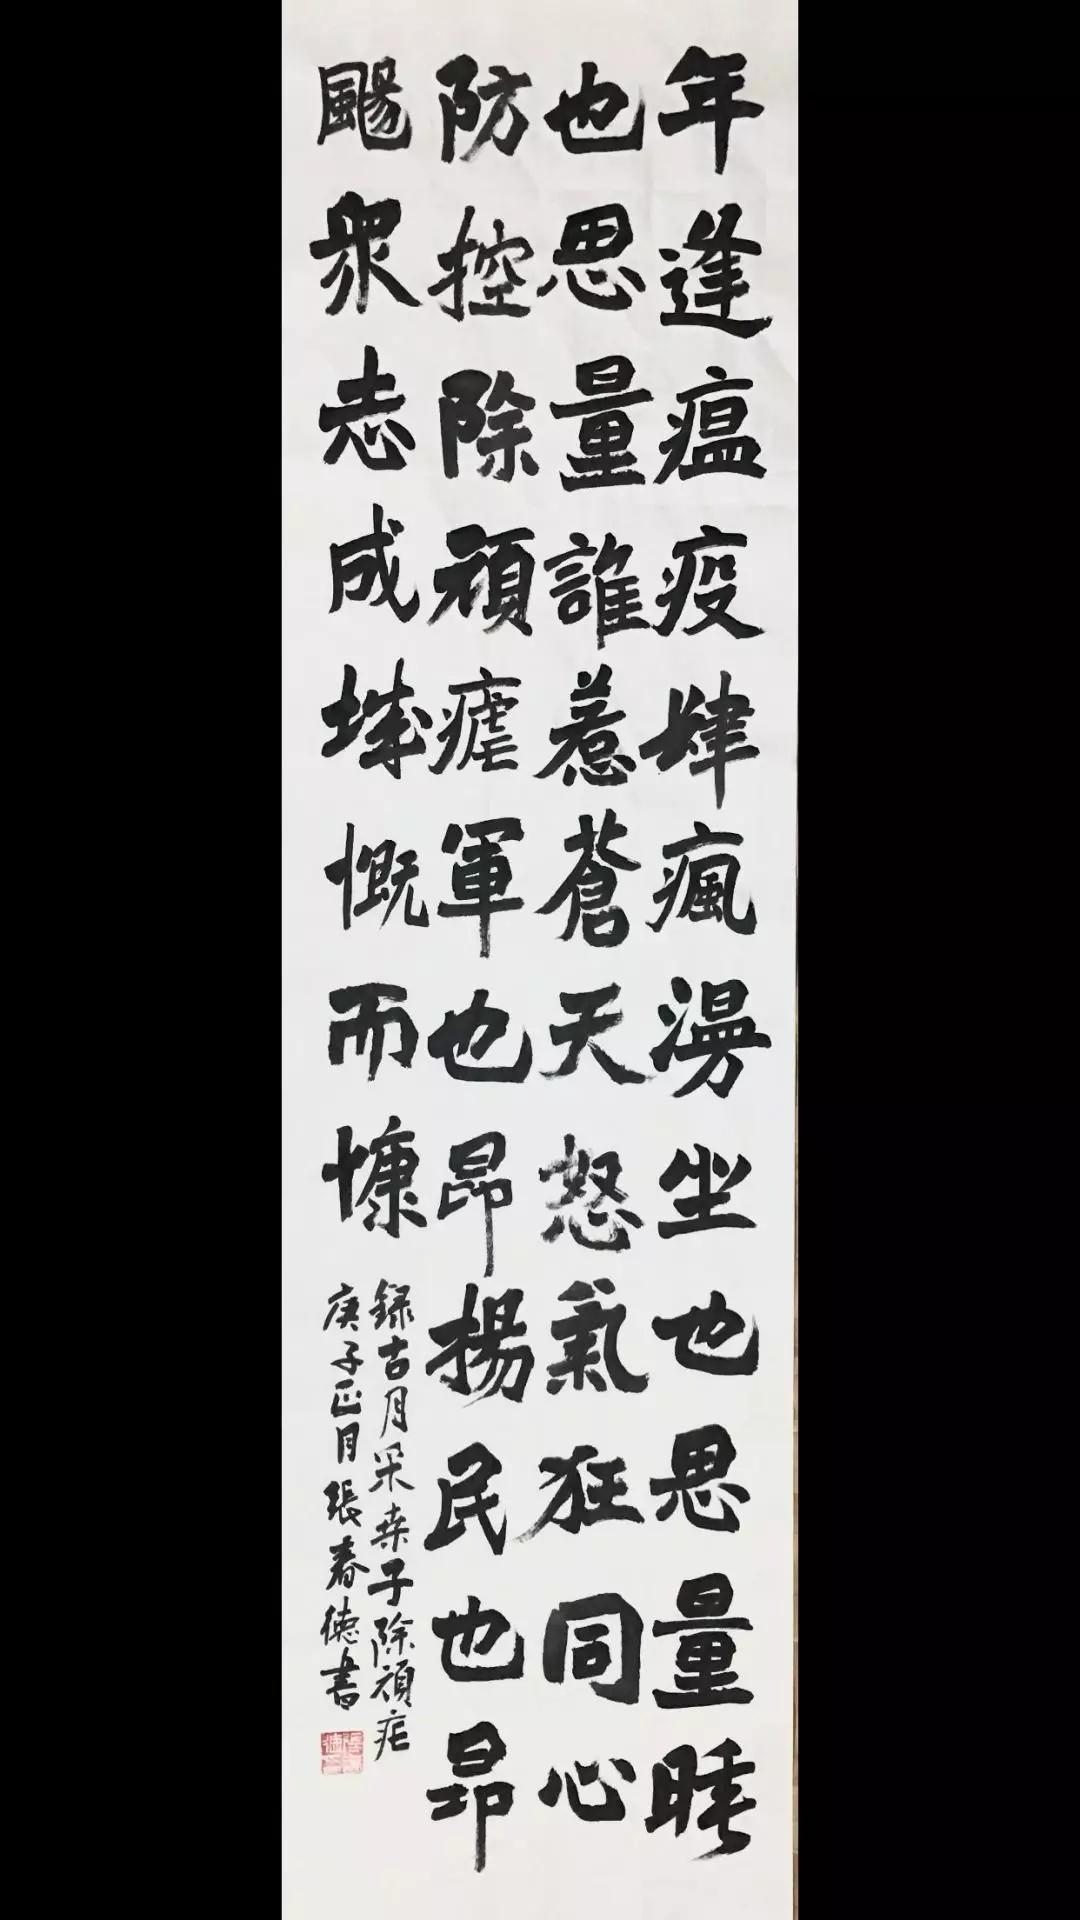 年逢瘟疫肆瘋漫坐也思量睡
也思量誰惹蒼天怒氣狂同心
防控除頑瘧軍也昂揚民也昂
颺衆志成城慨而慷
錄古月采桒子除頑疟
庚子正月張春德書